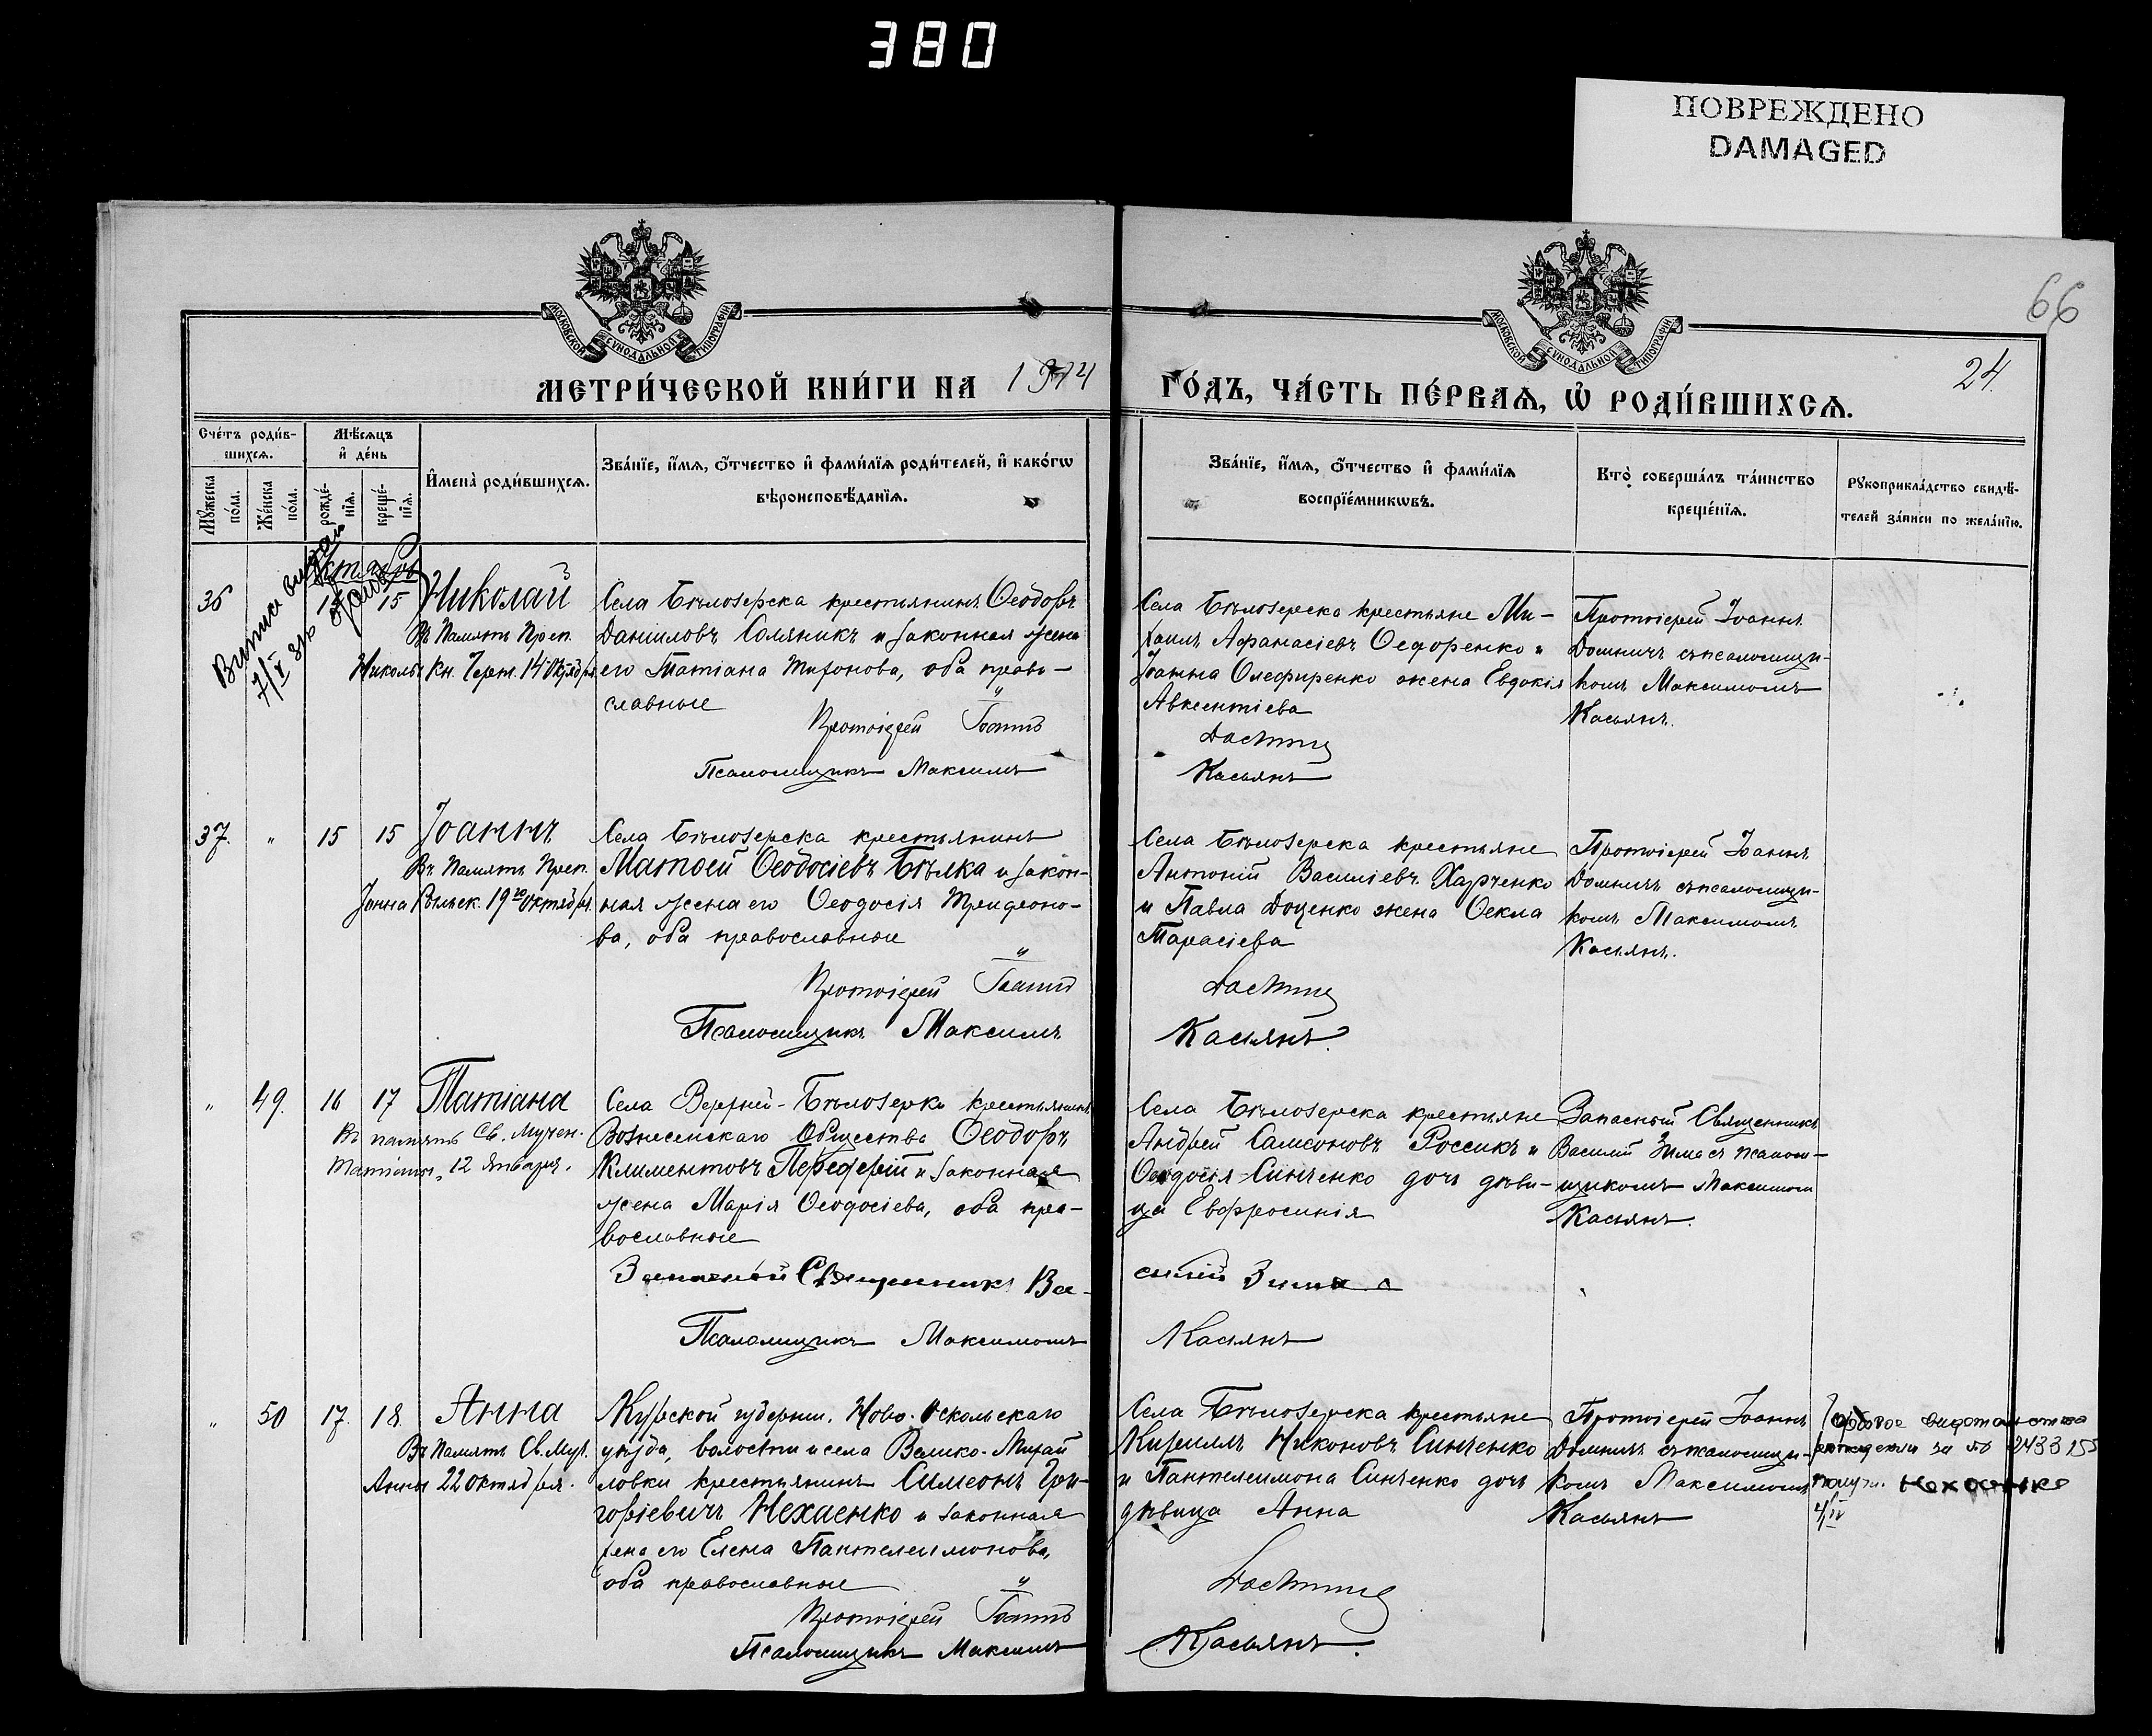 380
ПОВРЕЖДЕНО
DAMAGED
66
24.
МОСКОВСКОЙ СѴНОДАЛЬНОЙ ТИПОГРАФІИ
МОСКОВСКОЙ СѴНОДАЛЬНОЙ ТИПОГРАФІИ
МЕТРИ́ЧЕСКОЙ КНИ́ГИ НА 1914 ГО́ДЪ, ЧА́СТЬ ПЕ́РВАѦ, Ѡ҆ РОДИ́ВШИХСѦ.
Сче́тъ роди́в-
шихсѧ.
Мꙋ́жеска по́ла.
Же́нска по́ла.
Мѣ́сѧцъ
и҆ де́нь
рожде́-
нїѧ.
креще́-
нїѧ.
И҆мена̀ роди́вшихсѧ.
Зва́нїе, и҆́мѧ, ѻ҆́тчество и҆ фами́лїѧ роди́телей, и҆ како́гѡ
вѣроисповѣ́данїѧ.
Зва́нїе, и҆́мѧ, ѻ҆́тчество и҆ фами́лїѧ
воспрїе́мникѡвъ.
Кто̀ соверша́лъ та́инство
креще́нїѧ.
Рꙋкоприкла́дство свидѣ́-
телей за́писи по жела́нїю.
Октябрь
36 15 Николай
Въ Память Преп.
Николы Кн. Черн. 14 Октября.
Села Бѣлозерска крестьянинъ Ѳеодоръ
Даниловъ Соляникъ и законная жена
его Татіана Тихонова, оба право-
славные
Протоіерей Іоаннъ
Псаломщикъ Максимъ
Села Бѣлозерска крестьяне Ми-
хаилъ Афанасіевъ Ѳедоренко и
Іоанна Олефиренко жена Евдокія
Авксентіева
Касьянъ
Протоіерей Іоаннъ
Домничъ съ псаломщи-
комъ Максимомъ
Касьянъ.
37. " 15 15 Іоаннъ
Въ Память Преп.
Іоанна Рыльск. 19го Октября.
Села Бѣлозерска крестьянинъ
Матѳей Ѳеодосіевъ Бѣлка и закон-
ная жена его Ѳеодосія Трифоно-
ва, оба православные
Протоіерей Іоаннъ
Псаломщикъ Максимъ
Села Бѣлозерска крестьяне
Антоній Василіевъ Харченко
и Павла Доценко жена Ѳекла
Тарасіева
Касьянъ.
Протоіерей Іоаннъ
Домничъ съ псаломщи-
комъ Максимомъ
Касьянъ.
" 49. 16 17 Татіана
Въ память Св. Мучен.
Татіаны, 12 Января.
Села Верхней-Бѣлозерки крестьянинъ
Вознесенскаго Общества Ѳеодоръ
Климентовъ и законная
жена Марія Ѳеодосіева, оба пра-
вославные
Запасной Священникъ Ва-
Псаломщикъ Максимомъ
Села Бѣлозерска крестьяне
Андрей Самсоновъ Россикъ и
Ѳеодосія Синченко дочь дѣви-
ца Евфросинія
силій Зима
Касьянъ
Запасной Священникъ
Василій Зима съ псалом-
щикомъ Максимомъ
Касьянъ.
" 50 17. 18. Анна
Въ Память Св. Муч.
Анны 22 октября.
Курской губерніи, Ново-Оскольскаго
уѣзда, волости и села Велико-Михай
ловки крестьянинъ Симеонъ Гри-
горіевичъ Нехаенко и законная
жена его Елена Пантелеимонова,
оба православные
Протоіерей Іоаннъ
Псаломщикъ Максимъ
Села Бѣлозерска крестьяне
Кириллъ Никоновъ Синченко
и Пантелеимона Синченко дочь
дѣвица Анна
Касьянъ.
Протоіерей Іоаннъ
Домничъ съ псаломщи-
комъ Максимомъ
Касьянъ